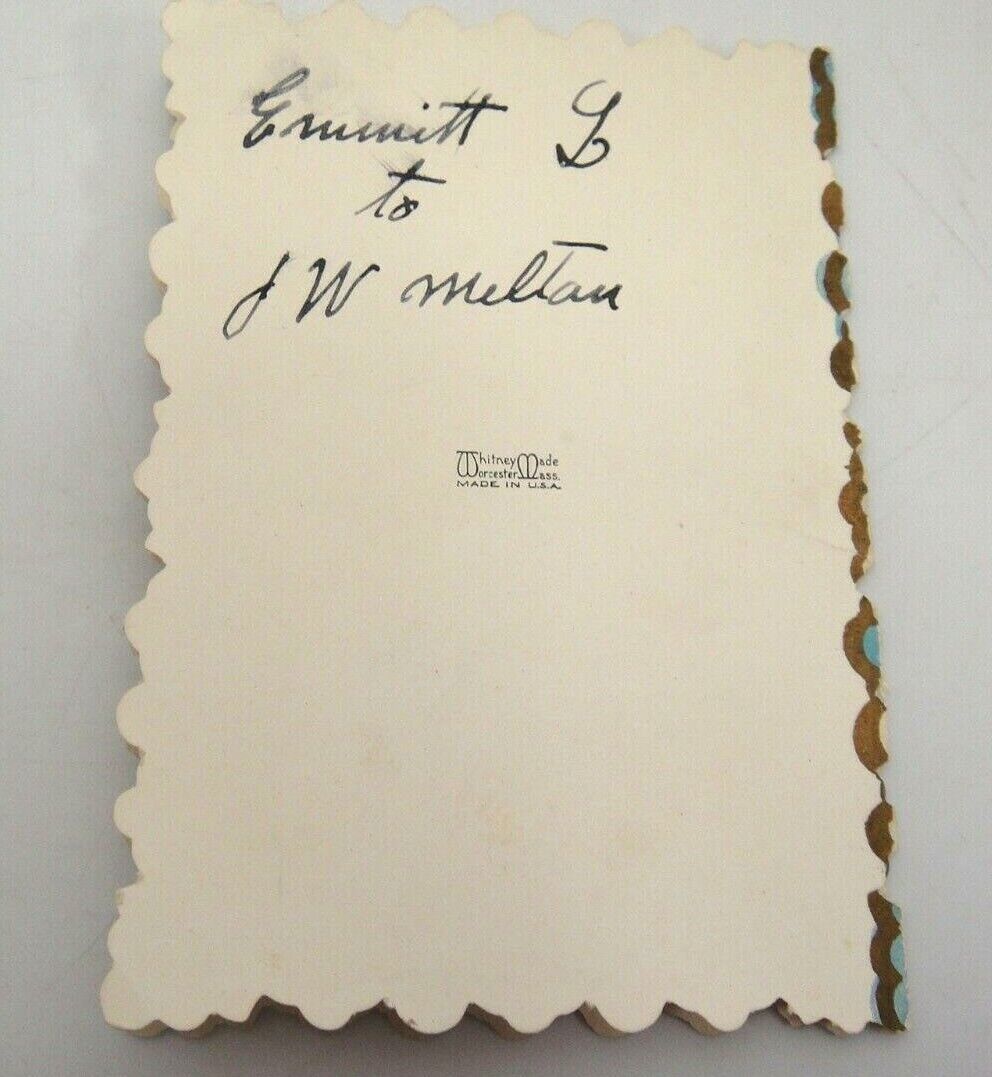 Emmitt L
to
J W Melton
Whitney Made
Worcester Mass.
MADE IN U.S.A.